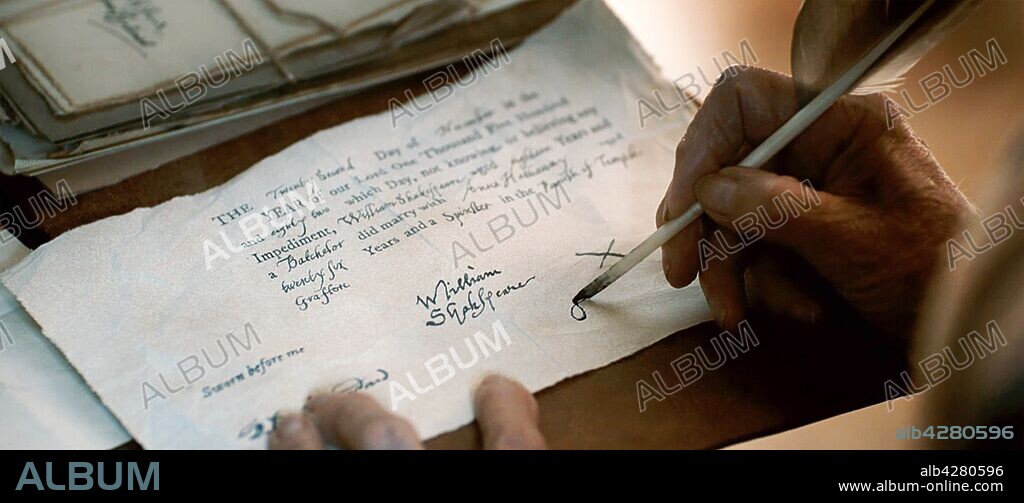 THE Twenty Second Day of November in the
YEAR of our Lord One Thousand Five Hundred
and eighty two which Day, not knowing or believing any
Impediment, William Shakespeare, aged eighteen Years and
a Batchelor did marry with Anne Hathaway
twenty six Years and a Spinster in the Parish of Temple
Grafton
William
Shakspeare
X
Sworn before me
ALBUM
alb4280596
ALBUM
alb4280596
www.album-online.com